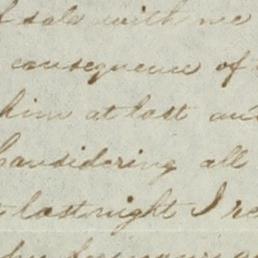 sold with me
consequence of
him at last and
Considering all
last night I re